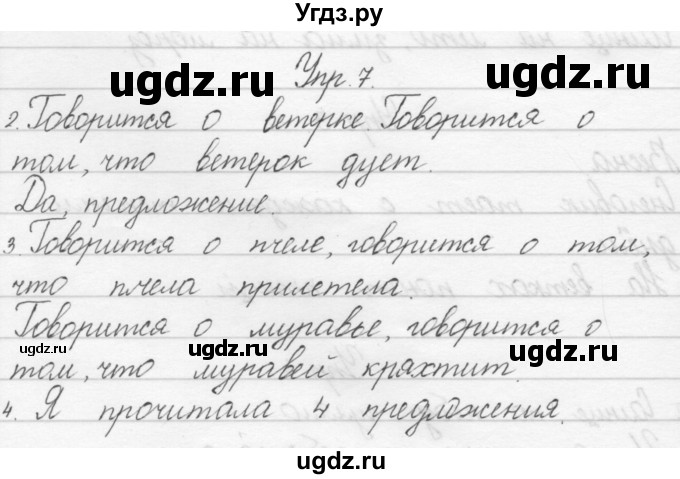 Угдз.ру
Упр. 7.
ugdz.ru
ugdz.ru
2. Говорится о ветерке. Говорится о
том, что ветерок дует.
ugdz.ru
Да, предложение.
3. Говорится о пчеле, говорится о том,
что пчела прилетела.
Говорится о муравье, говорится о
ugdz.ru
ugdz.ru
ugdz.ru
том, что муравей кряхтит.
4. Я прочитала 4 предложения.
ugdz.ru